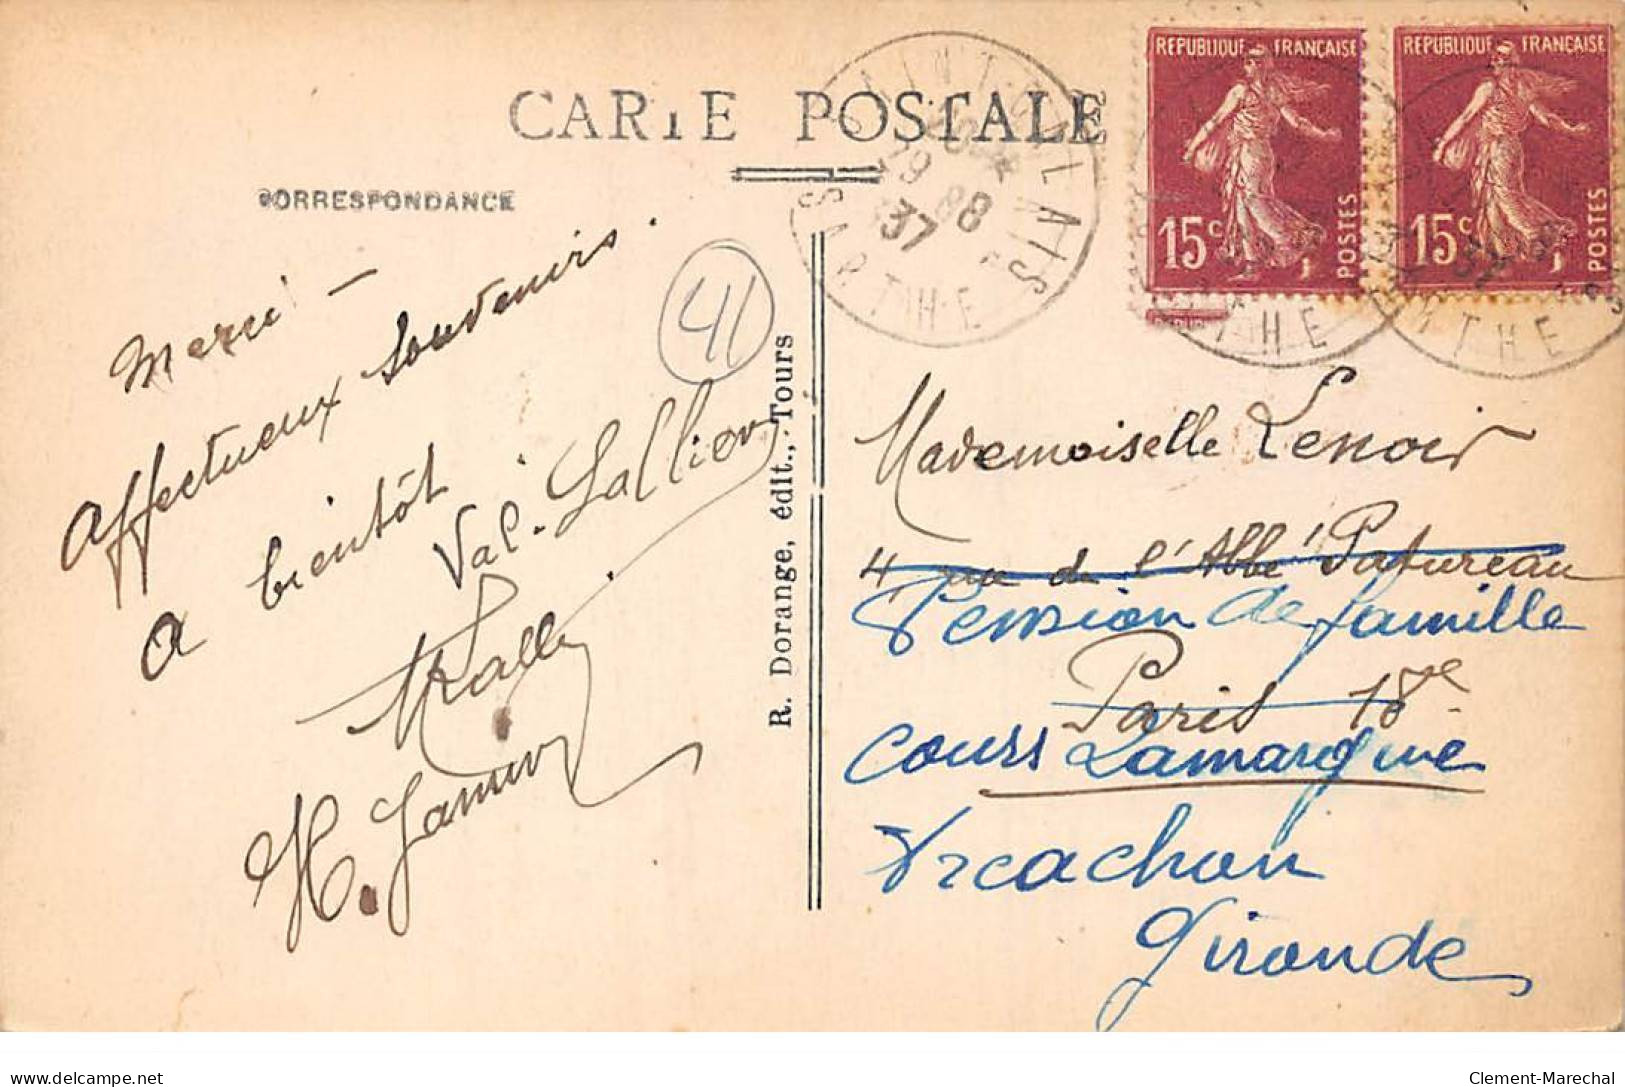 CARTE POSTALE
CORRESPONDANCE
Merci –
Affectueux souvenirs.
A bientôt.
41
R. Dorange, édit., Tours
SAINT-CALAIS
29
37
SARTHE
REPUBLIQUE FRANÇAISE
15c
POSTES
REPUBLIQUE FRANÇAISE
15c
POSTES
Mademoiselle Lenoir
4 rue de l'Abbé Patureau
Pension de famille
Paris 18e
Cours Lamarque
Arcachon
Gironde
delcampe.net
Clement-Marechal